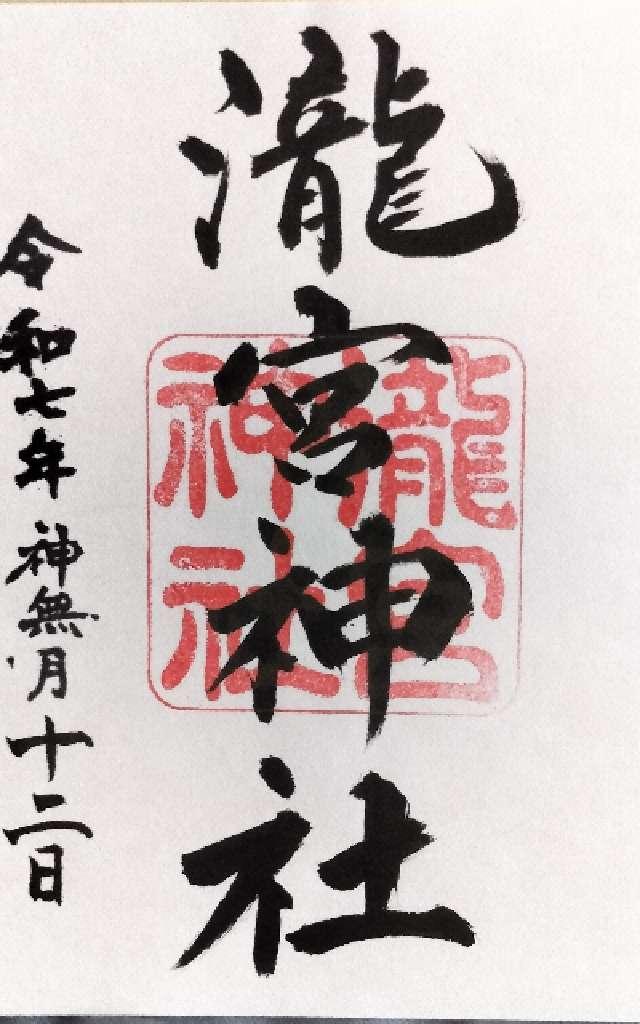 瀧宮神社
瀧宮
神社
令和七年神無月十二日